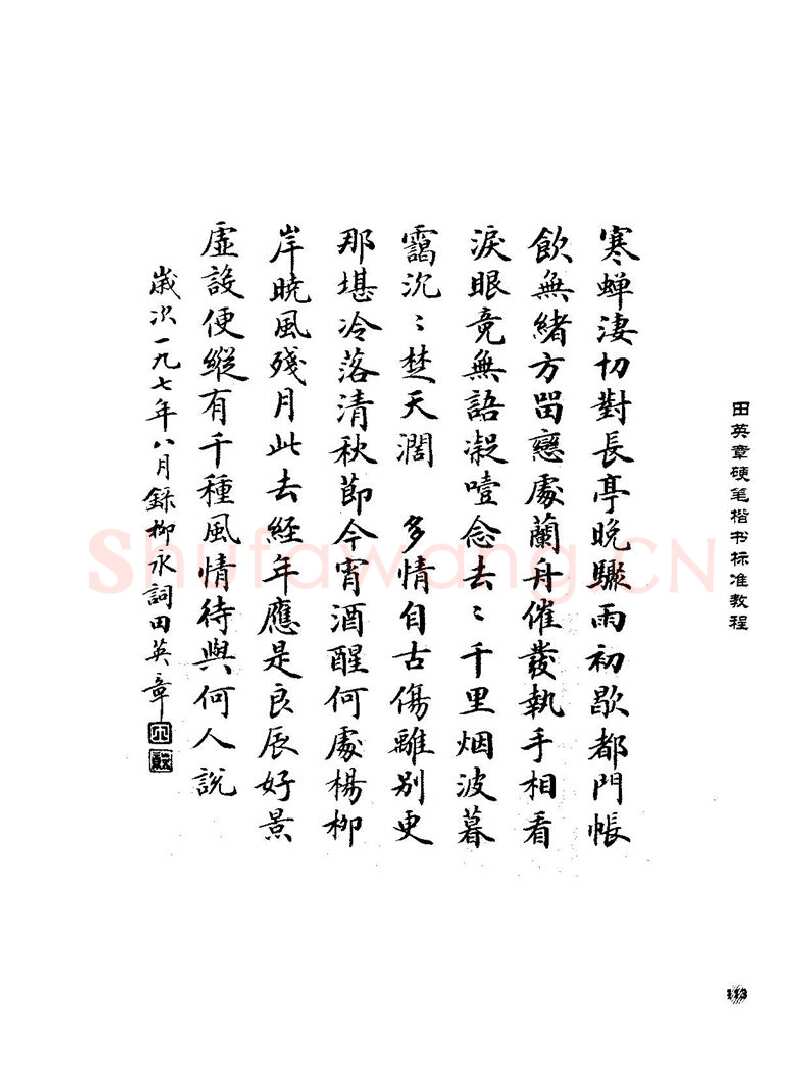 寒蟬淒切對長亭晚驟雨初歇都門帳
飲無緒方留戀處蘭舟催發執手相看
淚眼竟無語凝噎念去〻千里烟波暮
靄沉〻楚天濶　多情自古傷離別更
那堪冷落清秋節今宵酒醒何處楊柳
岸曉風殘月此去經年應是良辰好景
虛設便縱有千種風情待與何人説
歲次一九九七年八月錄柳永詞田英章
田英章硬笔楷书标准教程
113
Shufawang.CN